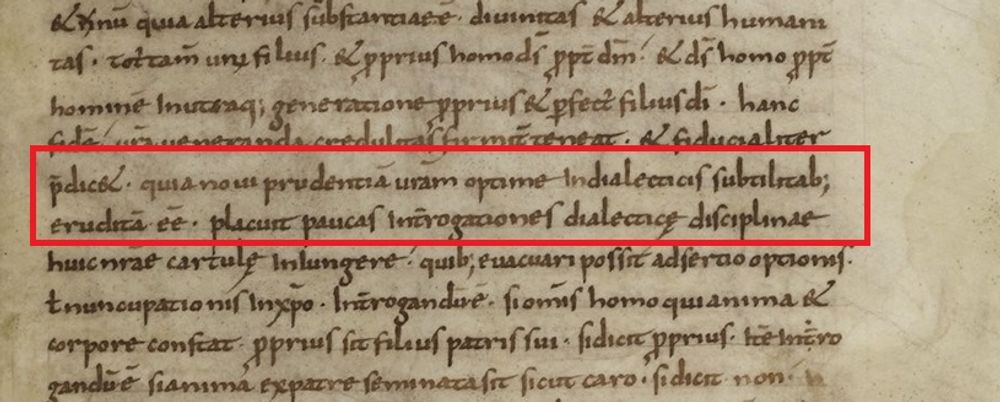 & unū quia alterius substantiae ē· divinitas & alterius humani
tas· totā tam̄ unꝰ filius· & ꝓprius homo dī ꝓpt dm̄· & ds̄ homo ꝓpt
hominē In utraq; generatione ꝓprius & ꝑfect' filius dī · hanc
fidē ur̄a veneranda credulitas firmit̄ teneat · & fiducialiter
p̄dic& · quia novi prudentiā uram̄ optime In dialecticis subtilitab;
eruditā eē · placuit paucas Int̄rogationes dialecticę disciplinae
huic nr̄ae cartulę Iniungere · quib; evacuari possit adsertio optionis·
ł nuncupationis In xp̄o · Int̄rogandū ē · si om̄s homo qui anima &
corpore constat · ꝓprius sit filius patris sui · si dicit ꝓprius· Itē Int̄ro
gandū ē si anima ex patre seminata sit sicut caro · si dicit non·